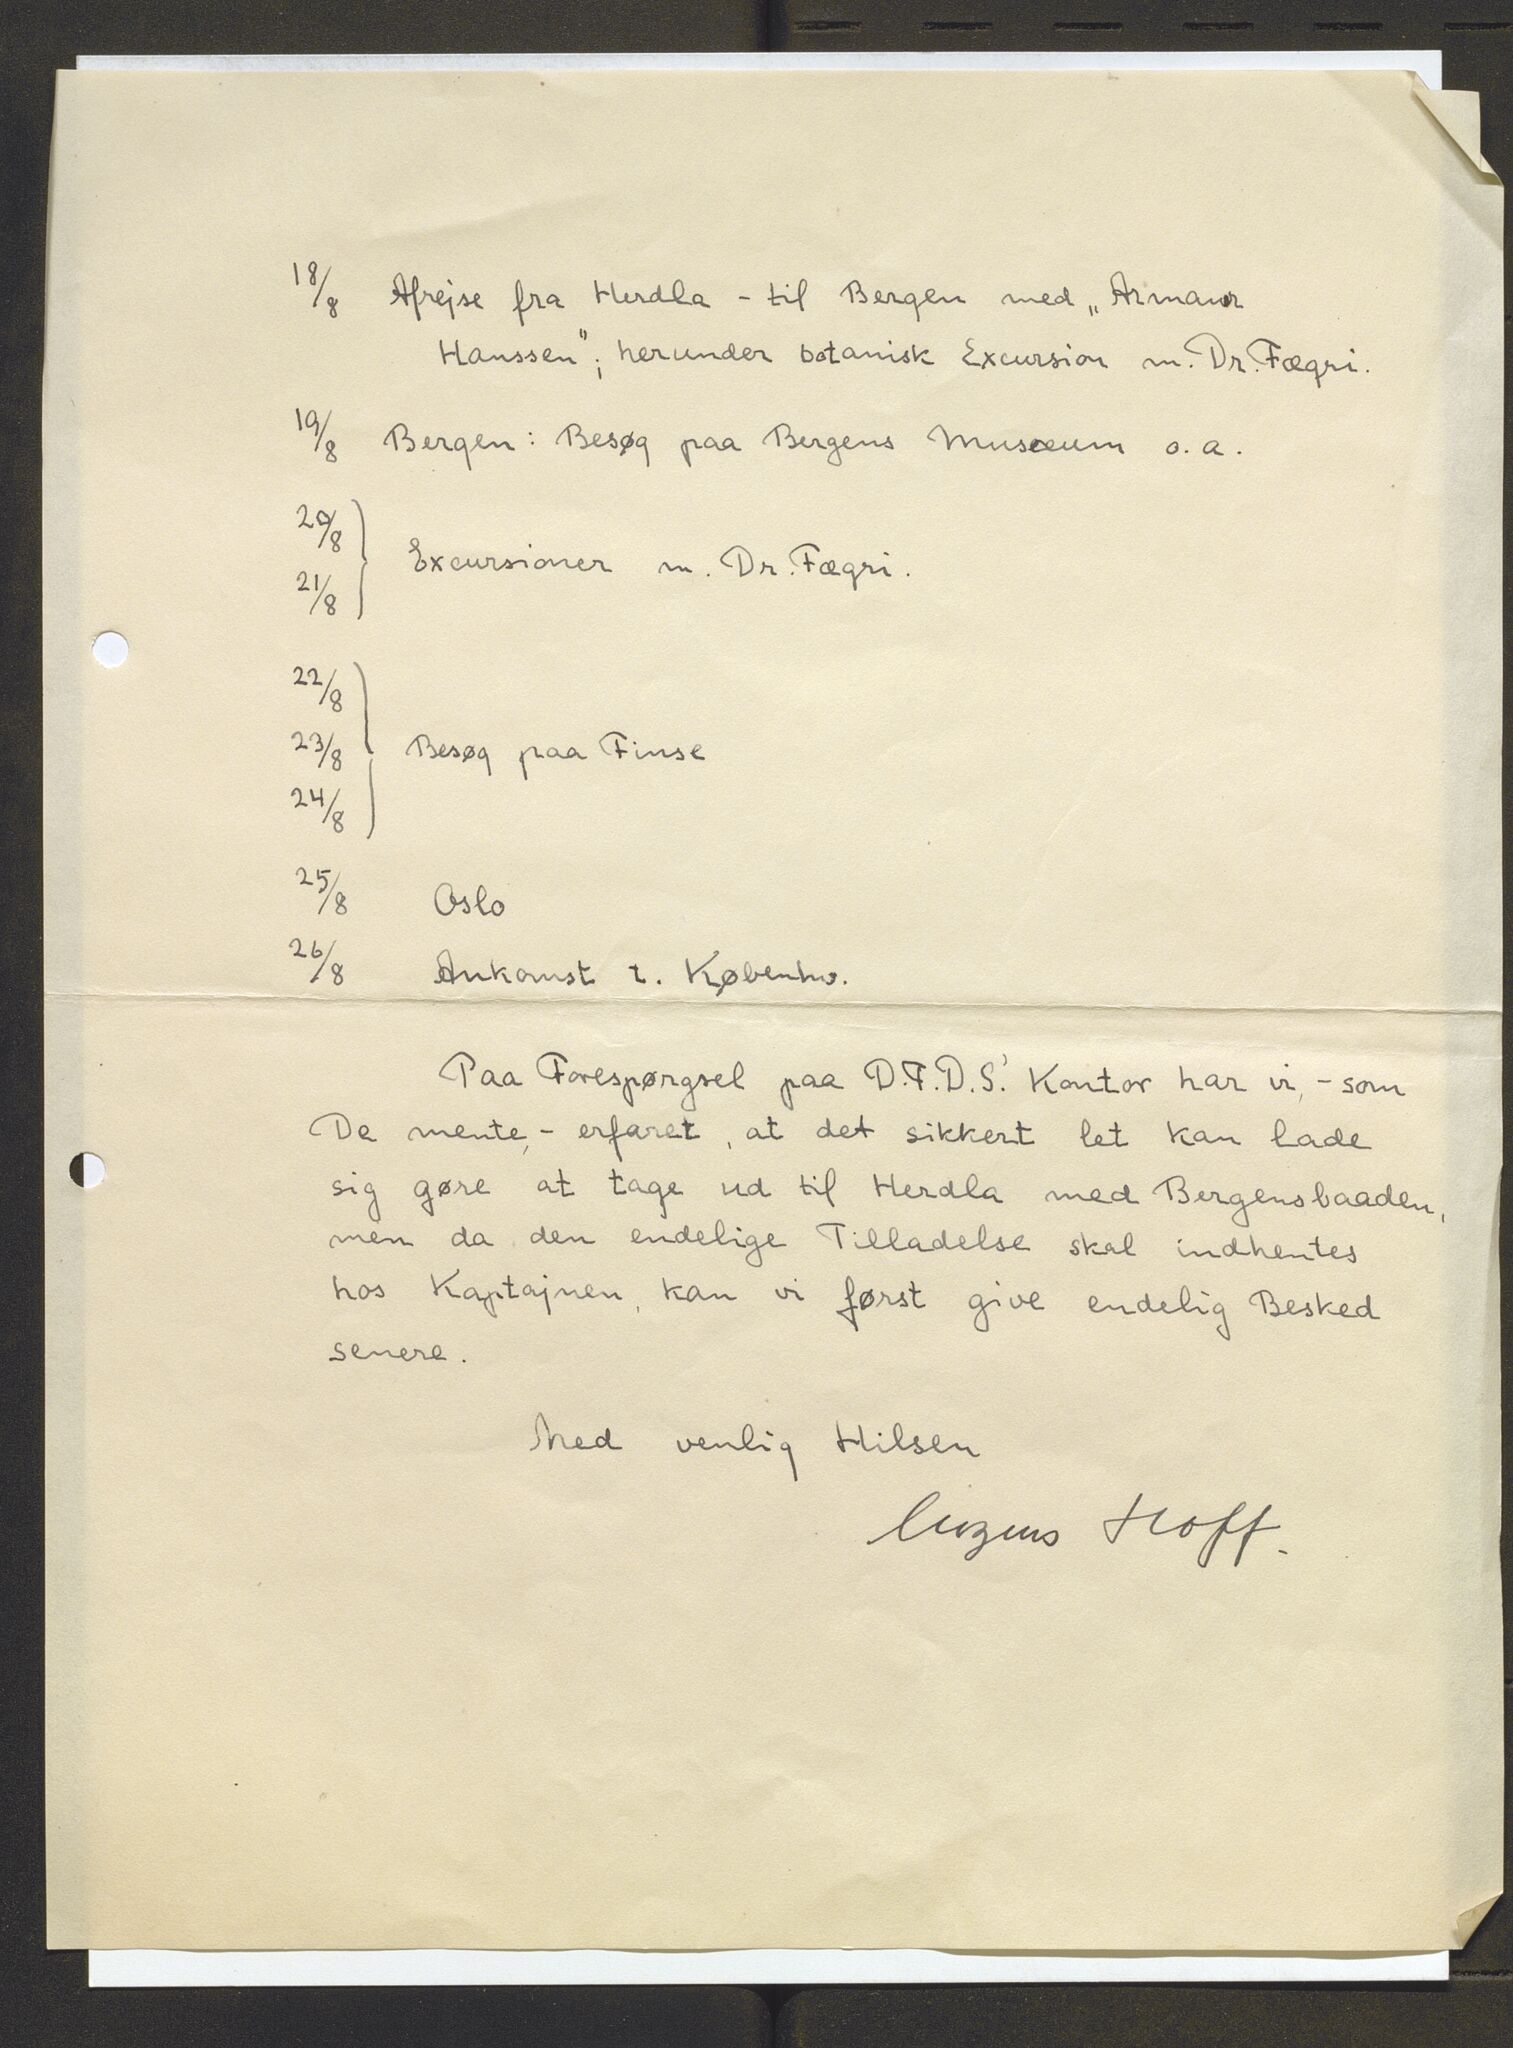 18/8 Afrejse fra Herdla - til Bergen med „Armaur
Hanssen"; herunder botanisk Excursion m. Dr. Fægri.
19/8 Bergen: Besøg paa Bergens Museum o. a.
20/8
21/8 Excursioner m. Dr. Fægri.
22/8
23/8 Besøg paa Finse
24/8
25/8 Oslo
26/8 Ankomst t. Københv.
Paa Forespørgsel paa D.F.D.S.' Kontor har vi, - som
De mente, - erfaret, at det sikkert let kan lade
sig gøre at tage ud til Herdla med Bergensbaaden,
men da den endelige Tilladelse skal indhentes
hos Kaptajnen, kan vi først give endelig Besked
senere.
Med venlig Hilsen
Hoff.